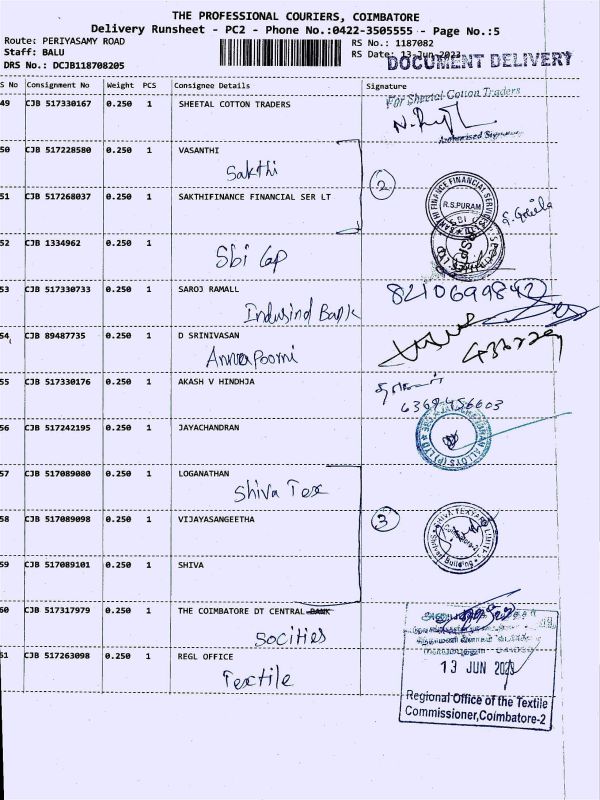 THE PROFESSIONAL COURIERS, COIMBATORE
Delivery Runsheet - PC2 - Phone No.:0422-3505555 - Page No.:5
Route: PERIYASAMY ROAD
RS No.: 1187082
Staff: BALU
RS Date: 13-Jun-2023
DOCUMENT DELIVERY
DRS No.: DCJB118708205
S No Consignment No Weight PCS Consignee Details Signature
49 CJB 517330167 0.250 1 SHEETAL COTTON TRADERS
For Sheetal Cotton Traders
Authorised Signatory
50 CJB 517228580 0.250 1 VASANTHI
Sakthi
2
51 CJB 517268037 0.250 1 SAKTHIFINANCE FINANCIAL SER LT
R.S.PURAM
52 CJB 1334962 0.250 1
Sbi Cap
53 CJB 517330733 0.250 1 SAROJ RAMALL
8210699842
Indusind Bank
54 CJB 89487735 0.250 1 D SRINIVASAN
Annapoorni
55 CJB 517330176 0.250 1 AKASH V HINDHJA
6369456603
56 CJB 517242195 0.250 1 JAYACHANDRAN
ALLOYS (P) LTD
57 CJB 517089080 0.250 1 LOGANATHAN
Shiva Tex
58 CJB 517089098 0.250 1 VIJAYASANGEETHA
3
59 CJB 517089101 0.250 1 SHIVA
60 CJB 517317979 0.250 1 THE COIMBATORE DT CENTRAL BANK
Socities
61 CJB 517263098 0.250 1 REGL OFFICE
Textile
13 JUN 2023
Regional Office of the Textile
Commissioner,Coimbatore-2